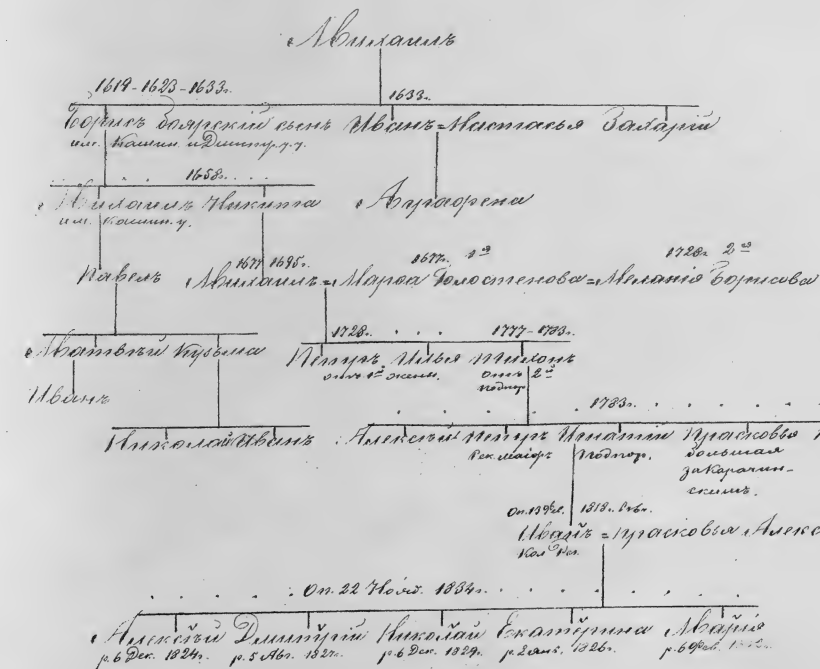 Михаилъ
1619-1623-1633г. 1633г.
Борисъ боярскій сынъ Иванъ=Настасья Захарій
им. Кашин. и Дмитр. у.у.
1658г.
Михаилъ Никита Аграфена
им. Кашин. у.
1677 1695г. 1677г. 1й 1728г. 2й
Павелъ Михаилъ=Марфа Голостенова=Меланія Борисова
1728г. 1777-1783г.
Матвѣй Кузьма Петръ Илья Филонъ
отъ 1й жены. отъ 2й
подпор.
Иванъ
1783г.
Николай Иванъ Алексѣй Петръ Игнатій Прасковья
Сек. маіоръ подпор. большая
за Карачин-
скимъ.
1818г.
Иванъ=Прасковья Алекс
Оп. 22 Нояб. 1834г.
Алексѣй Дмитрій Николай Екатерина Марія
р. 6 Дек. 1824г. р. 5 Авг. 1827г. р. 6 Дек. 1829г. р. 2 янв. 1826г. р. 6 Фев.